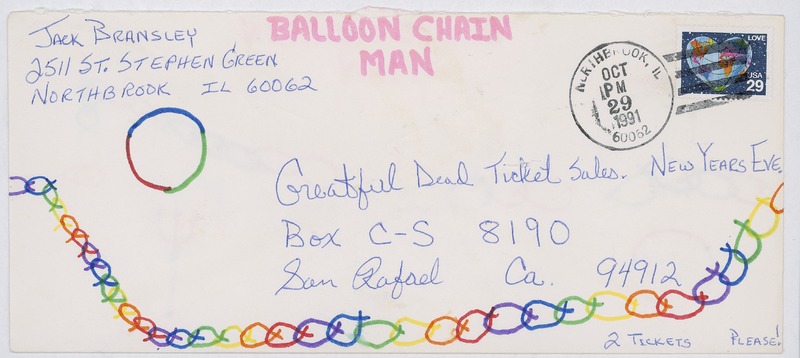 BALLOON CHAIN
MAN
Jack Bransley
2511 St. Stephen Green
Northbrook IL 60062
LOVE
USA
29
NORTHBROOK, IL
OCT
PM
29
1991
60062
Greatful Dead Ticket Sales. New Years Eve.
Box C-S 8190
San Rafael Ca. 94912
2 Tickets Please!